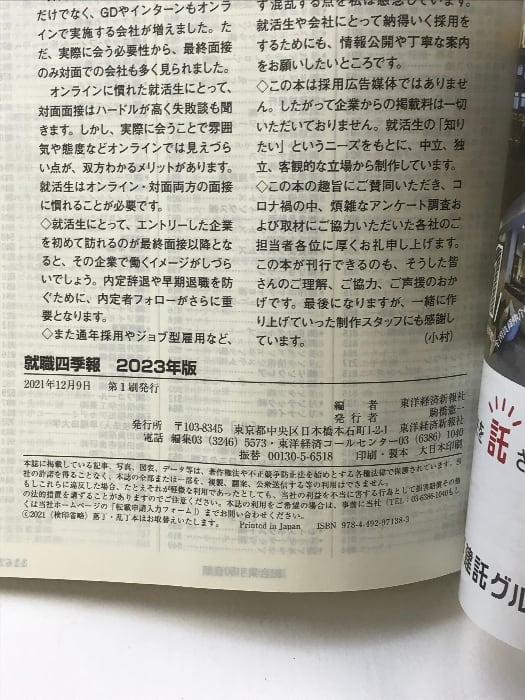 だけでなく、GDやインターンもオンラ
インで実施する会社が増えました。た
だ、実際に会う必要性から、最終面接
のみ対面での会社も多く見られました。
　オンラインに慣れた就活生にとって、
対面面接はハードルが高く失敗談も聞
きます。しかし、実際に会うことで雰囲
気や態度などオンラインでは見えづら
い点が、双方わかるメリットがあります。
就活生はオンライン・対面両方の面接
に慣れることが必要です。
◇就活生にとって、エントリーした企業
を初めて訪れるのが最終面接以降とな
ると、その企業で働くイメージがしづら
いでしょう。内定辞退や早期退職を防
ぐために、内定者フォローがさらに重
要となります。
◇また通年採用やジョブ型雇用など、
す混乱する点を私は懸念しています。
就活生や会社にとって納得いく採用を
するためにも、情報公開や丁寧な案内
をお願いしたいところです。
◇この本は採用広告媒体ではありませ
ん。したがって企業からの掲載料は一切
いただいておりません。就活生の「知り
たい」というニーズをもとに、中立、独
立、客観的な立場から制作しています。
◇この本の趣旨にご賛同いただき、コ
ロナ禍の中、煩雑なアンケート調査お
よび取材にご協力いただいた各社のご
担当者各位に厚くお礼申し上げます。
この本が刊行できるのも、そうした皆
さんのご理解、ご協力、ご声援のおか
げです。最後になりますが、一緒に作
り上げていった制作スタッフにも感謝し
ています。　（小村）
就職四季報　2023年版
2021年12月9日　第1刷発行
編　者　東洋経済新報社
発行者　駒橋憲一
発行所　〒103-8345　東京都中央区日本橋本石町1-2-1　東洋経済新報社
電話　編集03（3246）5573・東洋経済コールセンター03（6386）1040
振替　00130-5-6518　印刷・製本　大日本印刷
本誌に掲載している記事、写真、図表、データ等は、著作権法や不正競争防止法を始めとする各種法律で保護されています。当
社の許諾を得ることなく、本誌の全部または一部を、複製、翻案、公衆送信する等の利用はできません。
もしこれらに違反した場合、たとえそれが軽微な利用であったとしても、当社の利益を不当に害する行為として損害賠償その他
の法的措置を講ずることがありますのでご注意ください。本誌の利用をご希望の場合は、事前に当社（TEL：03-6386-1040もし
くは当社ホームページの「転載申請入力フォーム」）までお問い合わせください。
©2021〈検印省略〉落丁・乱丁本はお取替えいたします。　Printed in Japan　ISBN 978-4-492-97138-3
託さ
託グル